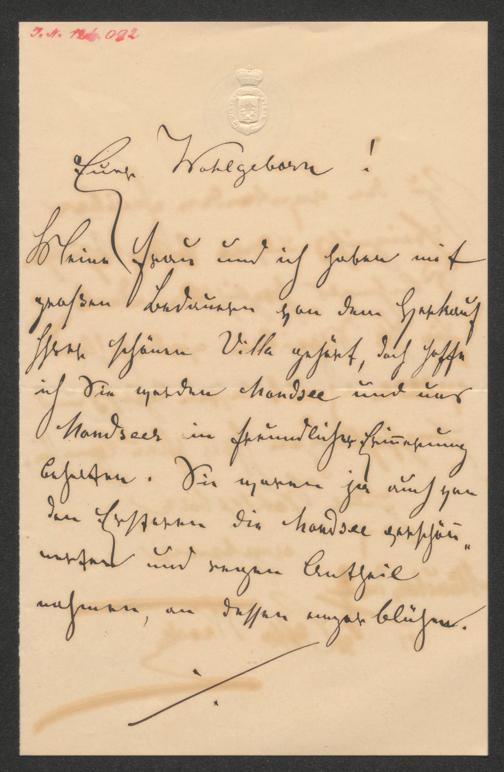 J. N. 126.092
Euer Wohlgeboren!
Meine Frau und ich haben mit
großen Bedauern von dem Verkauf
Ihrer schönen Villa gehört, doch hoffe
ich Sie werden Mondsee und uns
Mondseer in freundlicher Erinnerung
behalten. Sie waren ja auch von
den Ersteren die Mondsee verschön„
nerten und regen Antheil
nahmen, an dessen emporblühen.